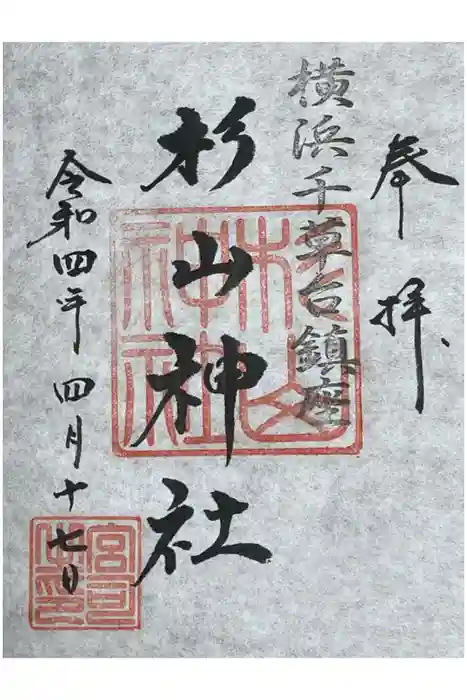 奉拝
横浜千草台鎮座
杉山神社
令和四年四月十七日
杉山神社
宮司之印